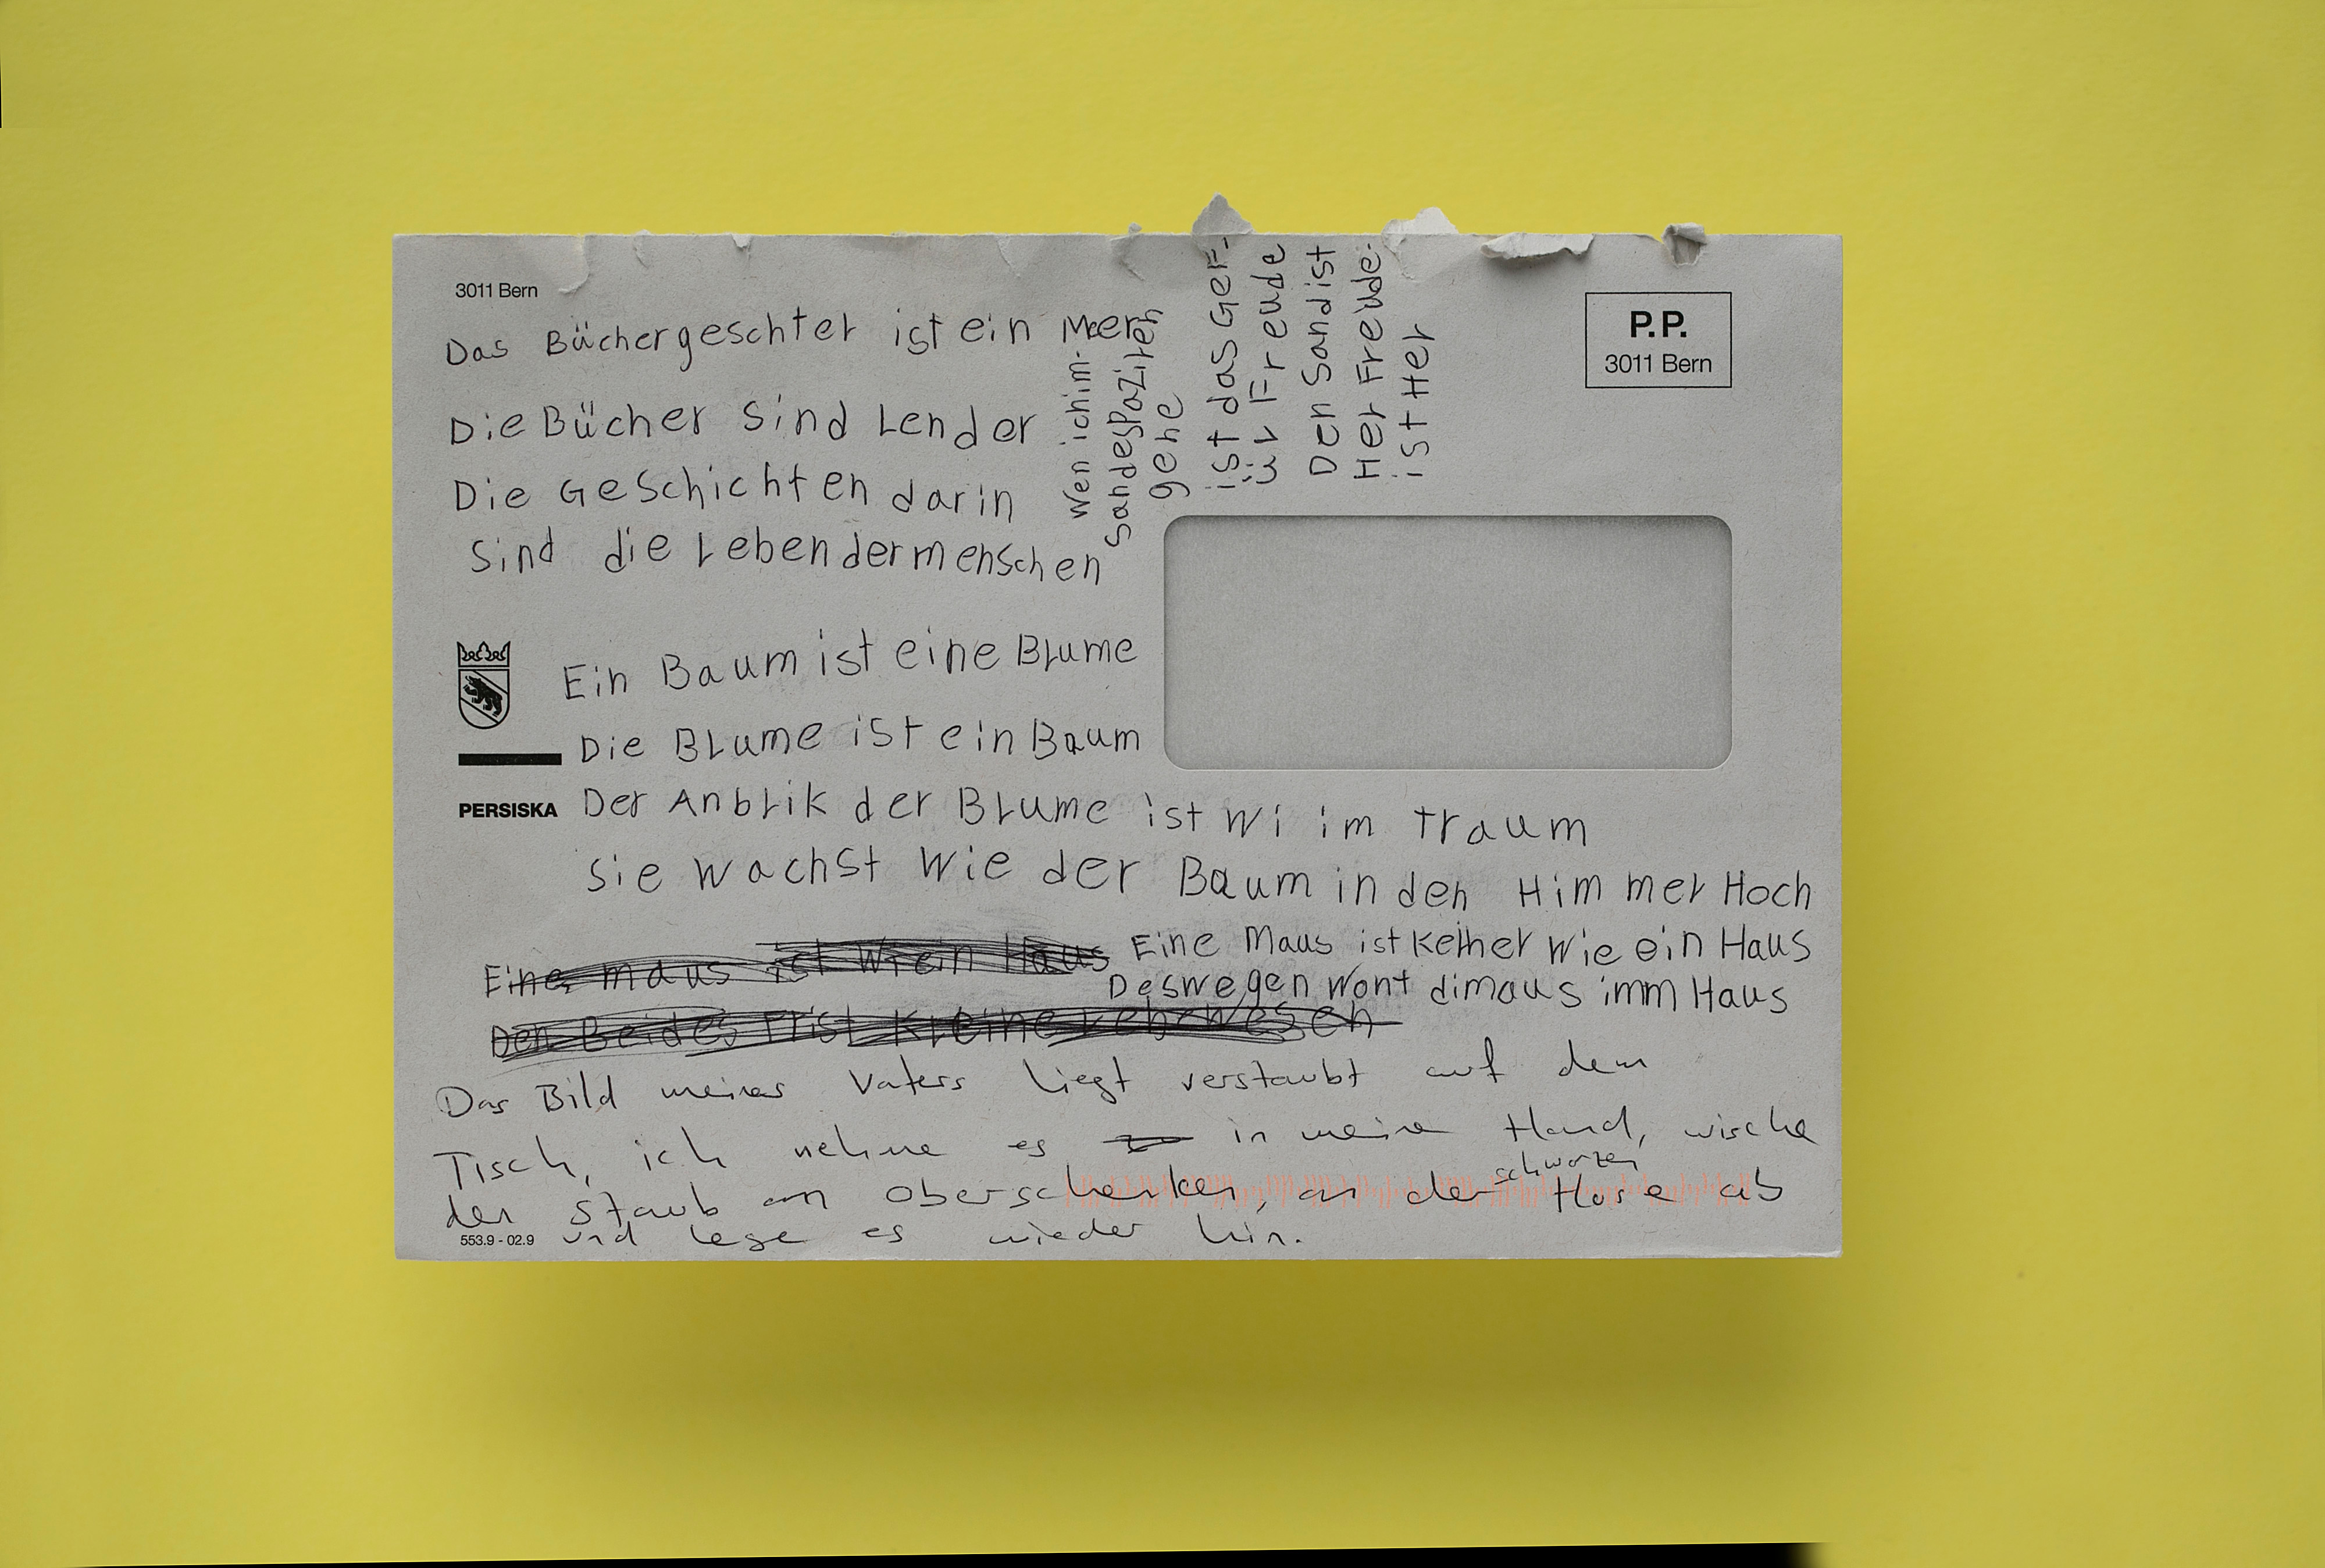 3011 Bern
P.P.
3011 Bern
Das Büchergeschtel ist ein Meer
Die Bücher sind Lender
Die Geschichten darin
sind die Leben der menschen
Wen ich im
sandespaziren
gehe
ist das Gef-
ül Freude
Den Sand ist
Hel Freude
ist Hel
Ein Baum ist eine Blume
Die Blume ist ein Baum
PERSISKA
Der Anblik der Blume ist wi im traum
sie wachst wie der Baum in den Himmel Hoch
Eine maus ist Wi ein Haus
Eine Maus ist kleiner wie ein Haus
Deswegen Wont di maus imm Haus
Den Beides
Das Bild meines Vaters liegt verstaubt auf dem
Tisch, ich nehme es in meine Hand, wische
schwarzen
den Staub am Oberschenkel, an der Hose ab
553.9 - 02.9
und lege es wieder hin.